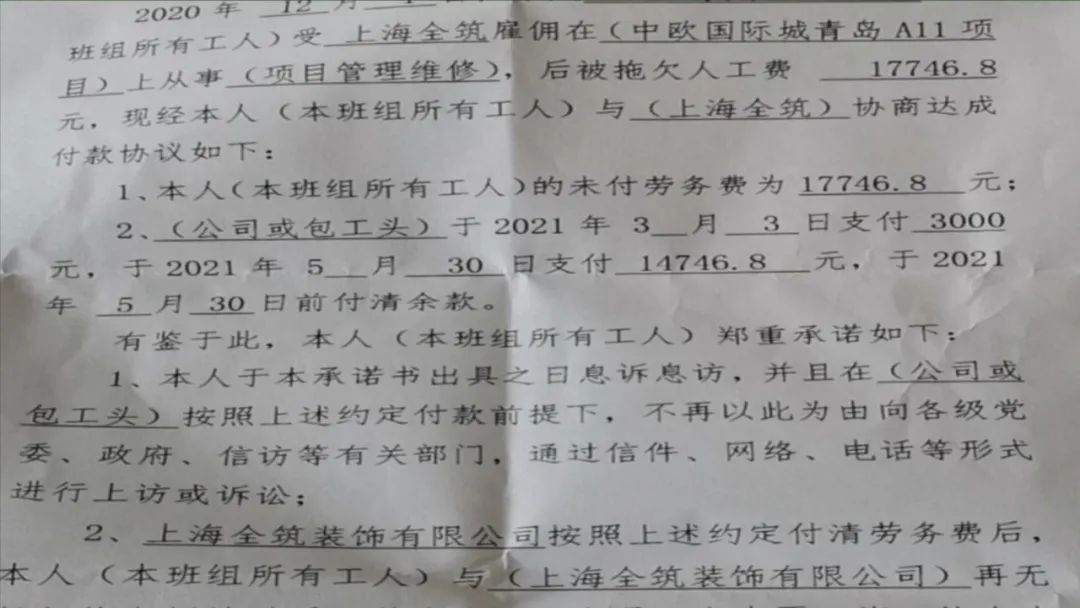 2020 年 12 月 1
班组所有工人）受 上海全筑雇佣在（中欧国际城青岛 A11 项
目）上从事（项目管理维修），后被拖欠人工费 17746.8
元，现经本人（本班组所有工人）与（上海全筑）协商达成
付款协议如下：
1、本人（本班组所有工人）的未付劳务费为 17746.8 元；
2、（公司或包工头）于 2021 年 3 月 3 日支付 3000
元，于 2021 年 5 月 30 日支付 14746.8 元，于 2021
年 5 月 30 日前付清余款。
有鉴于此，本人（本班组所有工人）郑重承诺如下：
1、本人于本承诺书出具之日息诉息访，并且在（公司或
包工头）按照上述约定付款前提下，不再以此为由向各级党
委、政府、信访等有关部门，通过信件、网络、电话等形式
进行上访或诉讼；
2、上海全筑装饰有限公司按照上述约定付清劳务费后，
本人（本班组所有工人）与（上海全筑装饰有限公司）再无